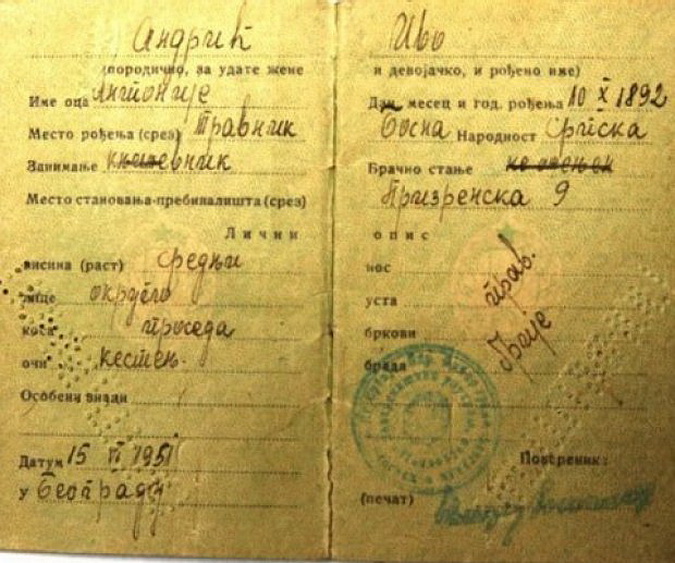 Андрић Иво
(породично, за удате жене и девојачко, и рођено име)
Име оца Антоније Дан месец и год. рођења 10 X 1892
Место рођења (срез) Травник Босна Народност Српска
Занимање књижевник Брачно стање неожењен
Место становања-пребивалишта (срез) Призренска 9
Лични опис
висина (раст) средњи нос прав.
лице округло уста
коса проседа бркови брије
очи кестењ. брада
Особени знаци
Датум 15 VI 1951 Повереник:
У Београду (печат)